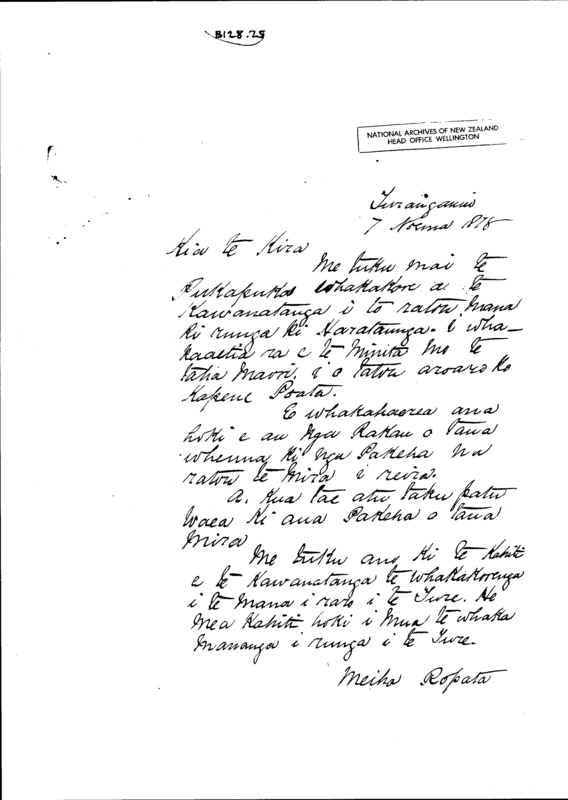 B128.25
NATIONAL ARCHIVES OF NEW ZEALAND
HEAD OFFICE WELLINGTON
Turanganui
7 Noema 1878
Kia te Kira
Me tuku mai te
Pukapuka Whakakore a te
Kawanatanga i to ratou Mana
ki runga ki Harataunga. I wha-
kaaetia ra e te Minita Mo te
taha Maori. i o tatou aroaro ko
Kapene Poata.
E whakahaerea ana
hoki e au Nga Rakau o taua
whenua ki nga Pakeha na
ratou te Mira i reira.
A. Kua tae atu taku patu
Waea Ki aua Pakeha o taua
Mira
Me tuku ano Ki te Kahiti
e te Kawanatanga te whakakorenga
i te Mana i raro i te Ture. He
Mea Kahiti hoki i Mua te whaka
Mananga i runga i te Ture.
Meiha Ropata